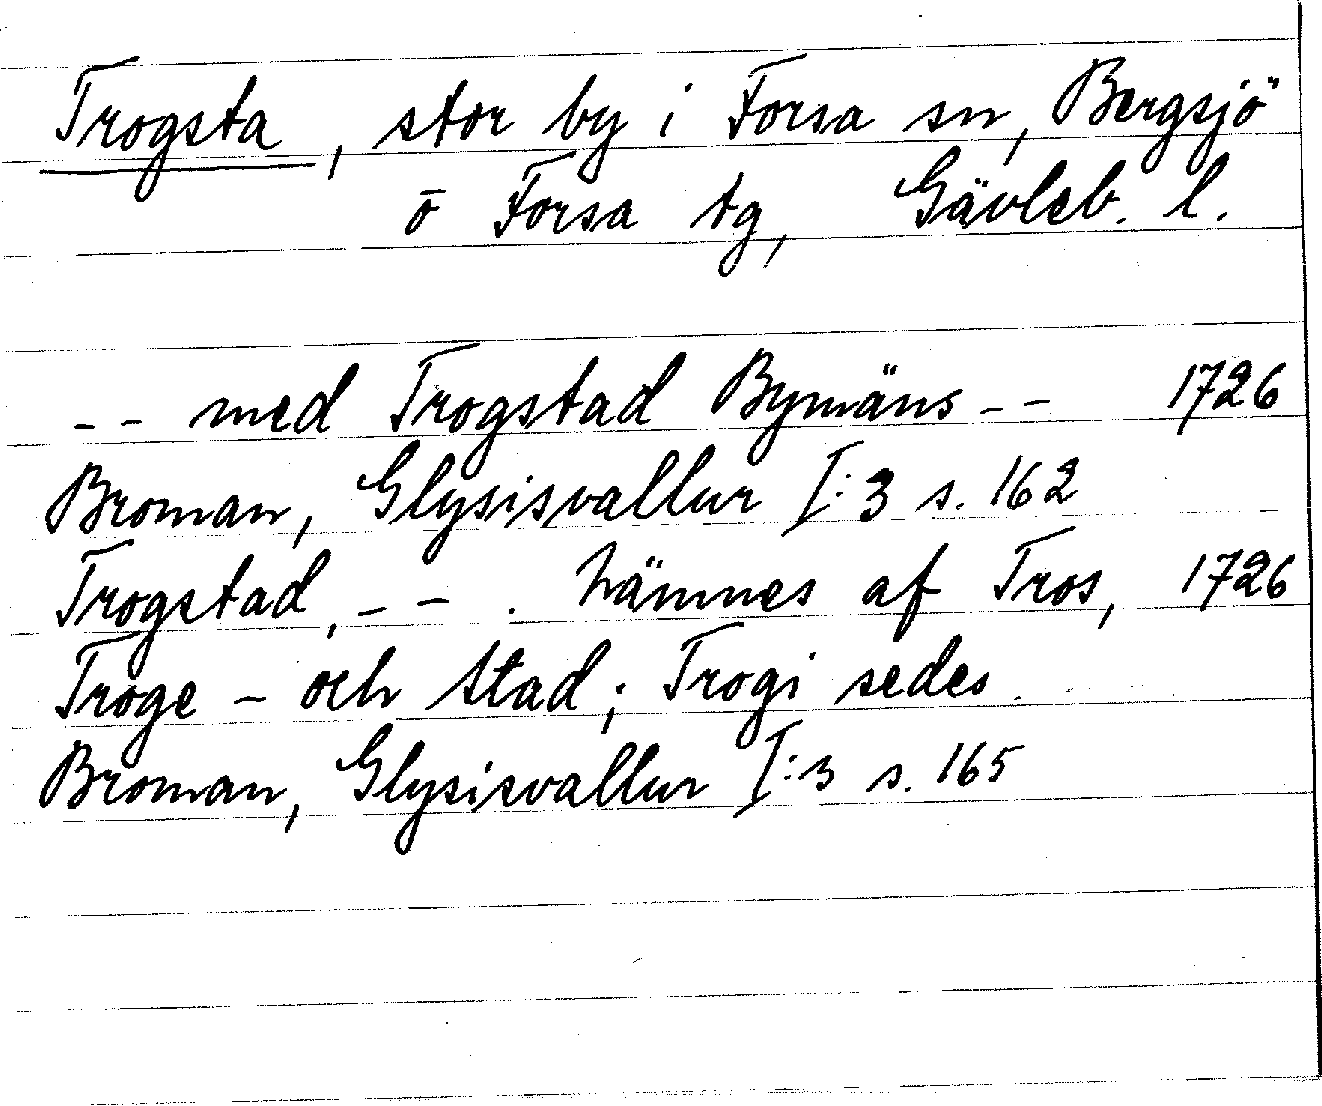 Trogsta, stor by i Forsa sn, Bergsjö
o Forsa tg, Gävleb. l.
-- med Trogstad Bymäns -- 1726
Broman, Glysisvallur I:3 s. 162
Trogstad, -- . Nämnes af Tros, 1726
Troge - och Stad; Trogi sedes.
Broman, Glysisvallur I:3 s. 165